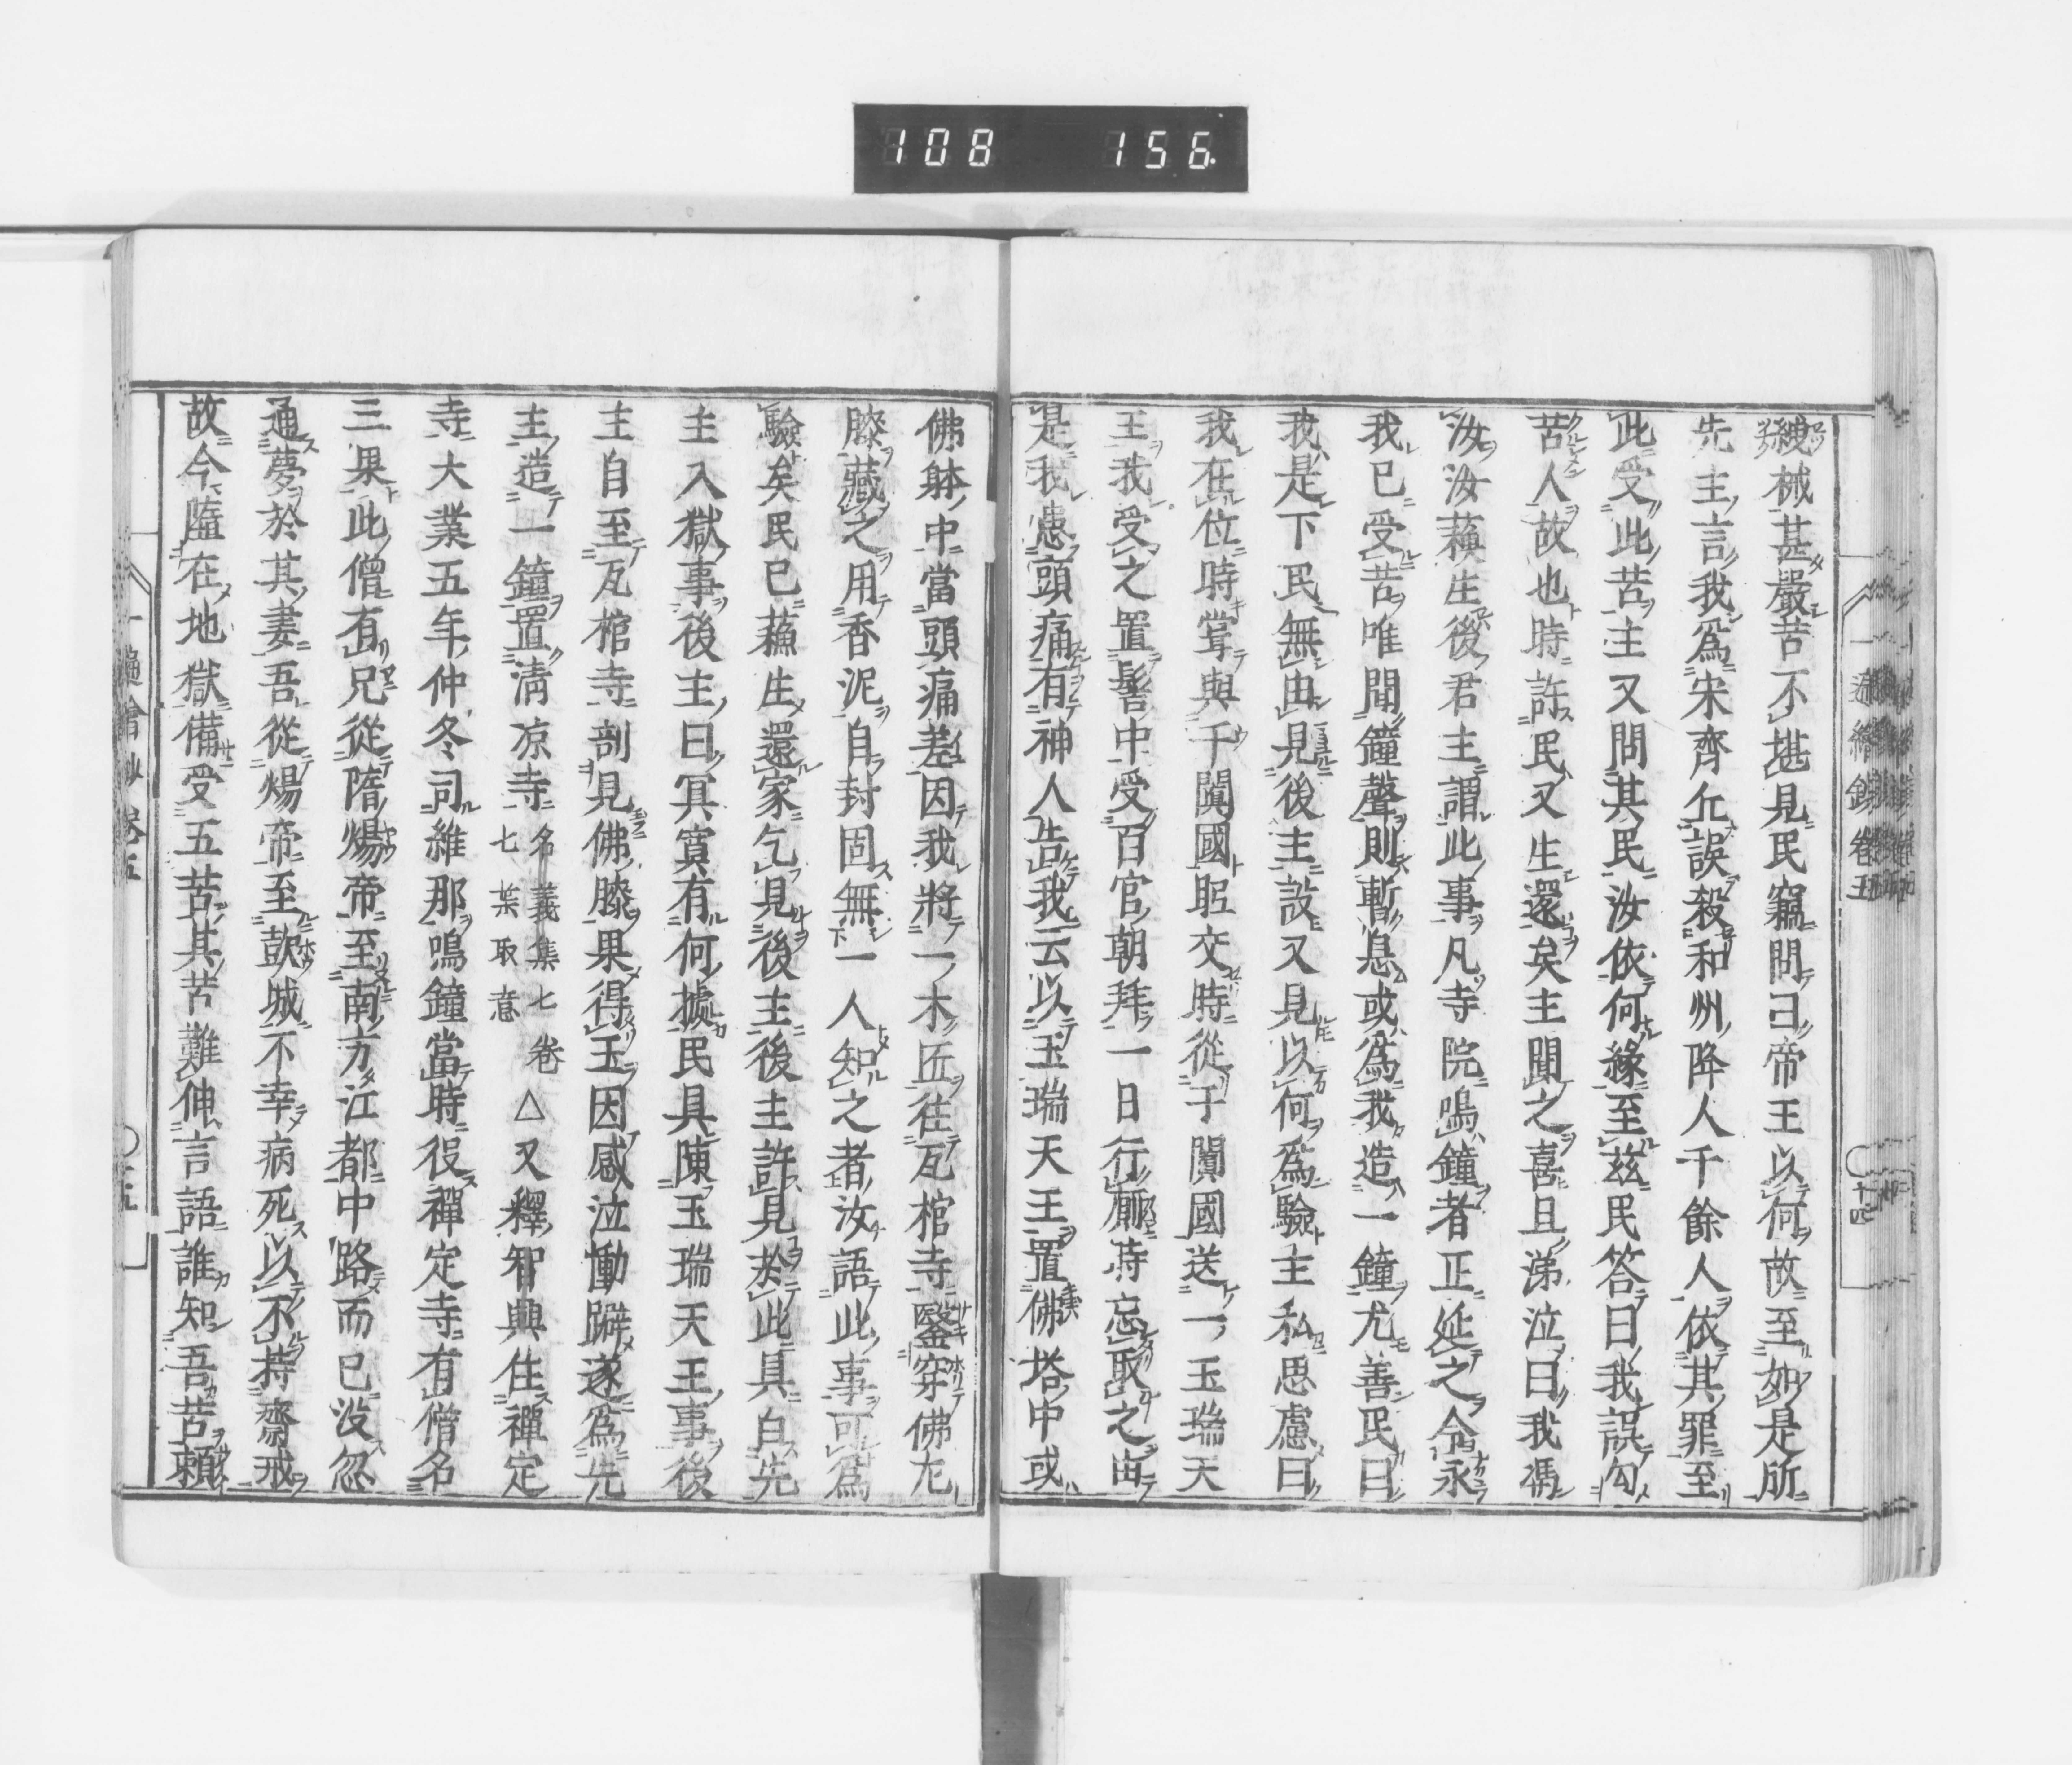 108 156
縲械甚嚴苦不堪見民竊問曰帝王以何故至如是所
先主言我爲宋齊丘誤殺和州降人千餘人依其罪至
此受此苦主又問其民汝依何緣至茲民答曰我誤勾
苦人故也時許民又生還矣主聞之喜且涕泣曰我憑
汝汝蘓生後君主謂此事凡寺院鳴鐘者正延之令永
我已受苦唯聞鐘聲則暫息或爲我造一鐘尤善民曰
我是下民無由見後主設又見以何爲驗主私思慮曰
我在位時甞與于闐國䏂交時從于闐國送一玉瑞天
王我受之置髻中受百官朝拜一日行廁時忘取之由
是我患頭痛有神人告我云以玉瑞天王置佛塔中或
佛躰中當頭痛差因我將一木匠往瓦棺寺鑿穿佛左
膝藏之用香泥自封固無一人知之者汝語此事可爲
驗矣民已蘓生還家乞見後主後主許見於此具白先
主入獄事後主曰冥實有何據民具陳玉瑞天王事後
主自至瓦棺寺剖見佛膝果得玉因感泣慟躃遂爲先
主造一鐘置淸凉寺 名義集七卷七葉取意 △又釋智興住禪定
寺大業五年仲冬司維那鳴鐘當時役禪定寺有僧名
三果此僧有兄從隋煬帝至南方江都中路而已沒忽
通夢於其妻吾從煬帝至彭城不幸病死以不持齋戒
故今墮在地獄備受五苦其苦難伸言語誰知吾苦賴